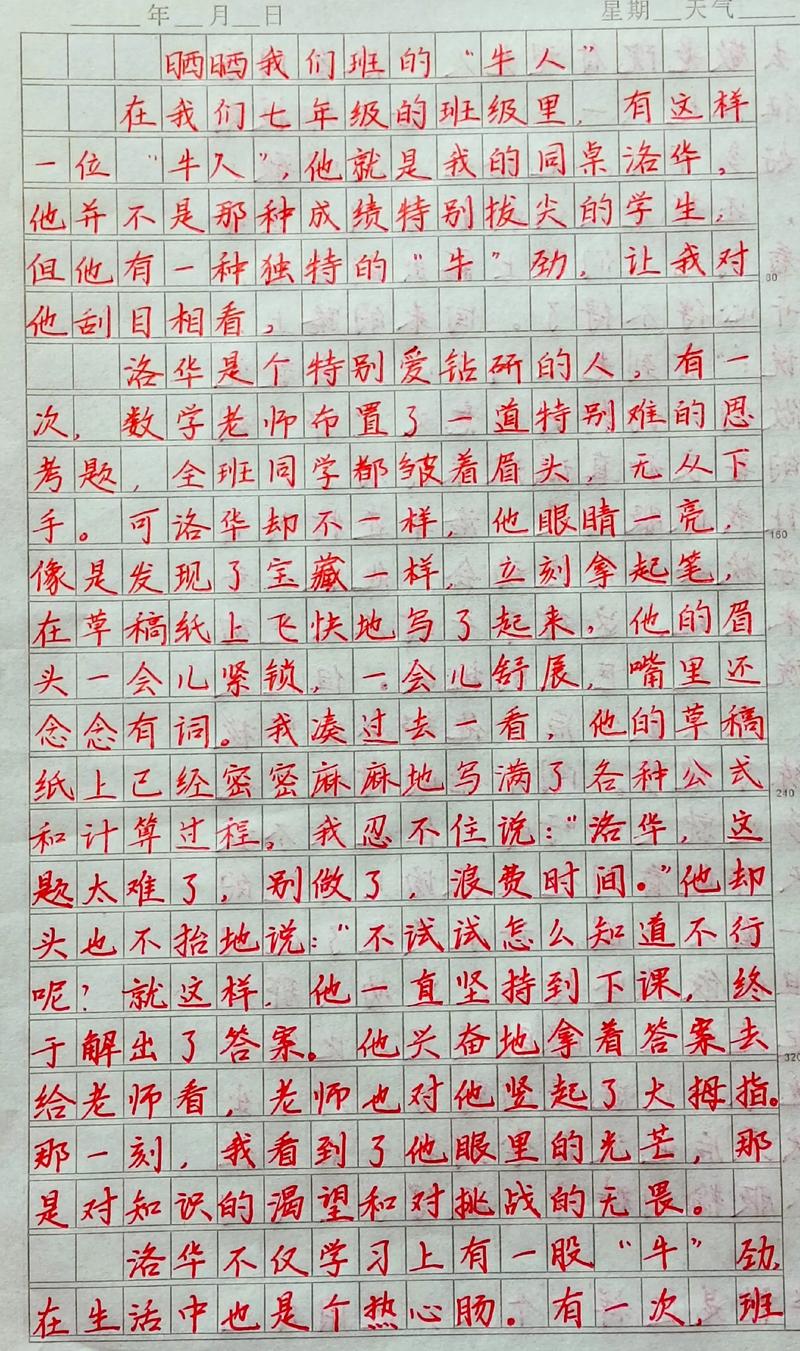 年 月 日 星期 天气
晒晒我们班的“牛人”
在我们七年级的班级里，有这样
一位“牛人”，他就是我的同桌洛华。
他并不是那种成绩特别拔尖的学生，
但他有一种独特的“牛”劲，让我对
80
他刮目相看。
洛华是个特别爱钻研的人，有一
次，数学老师布置了一道特别难的思
考题，全班同学都皱着眉头，无从下
手。可洛华却不一样，他眼睛一亮，
160
像是发现了宝藏一样，立刻拿起笔，
在草稿纸上飞快地写了起来，他的眉
头一会儿紧锁，一会儿舒展，嘴里还
念念有词。我凑过去一看，他的草稿
纸上已经密密麻麻地写满了各种公式
240
和计算过程。我忍不住说：“洛华，这
题太难了，别做了，浪费时间。”他却
头也不抬地说：“不试试怎么知道不行
呢？就这样，他一直坚持到下课，终
于解出了答案。他兴奋地拿着答案去
320
给老师看，老师也对他竖起了大拇指。
那一刻，我看到了他眼里的光芒，那
是对知识的渴望和对挑战的无畏。
洛华不仅学习上有一股“牛”劲，
在生活中也是个热心肠。有一次，班